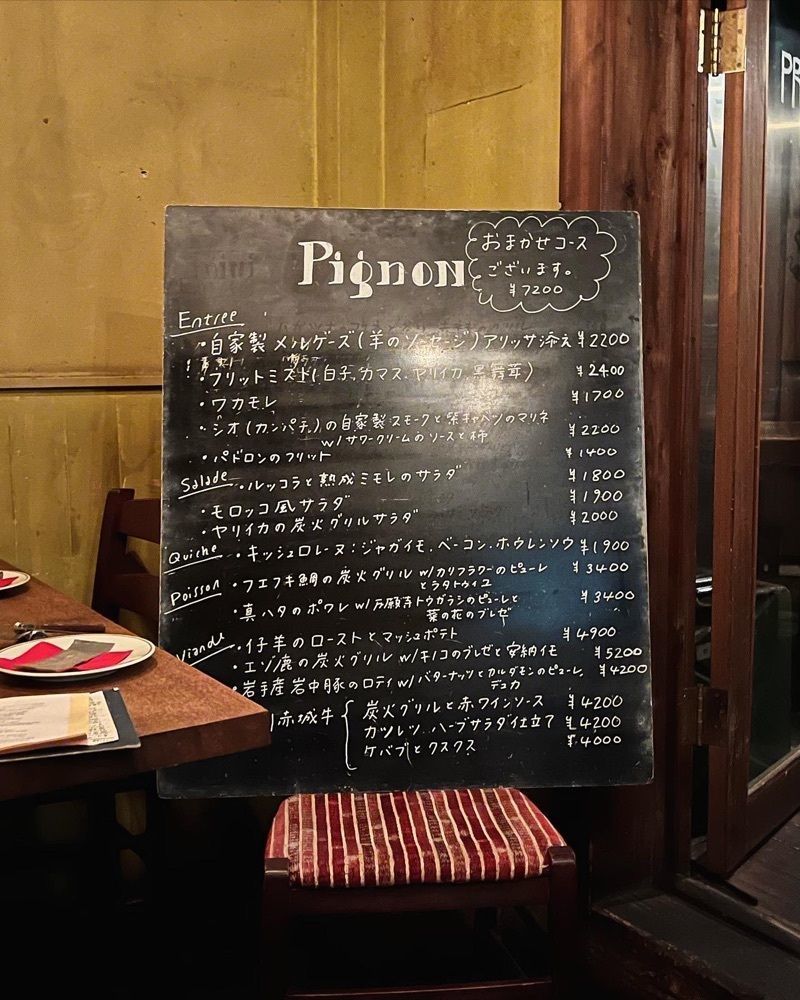 Pignon
おまかせコース
ございます。
¥7200
Entree
・自家製メルゲーズ(羊のソーセージ)アリッサ添え ¥2200
・フリットミスト(白子、カマス、ヤリイカ、黒舞茸) ¥2400
・ワカモレ ¥1700
・シオ(カンパチ)の自家製スモークと紫キャベツのマリネ ¥2200
w/サワークリームのソースと柿
・パドロンのフリット ¥1400
Salade ・ルッコラと熟成ミモレのサラダ ¥1800
・モロッコ風サラダ ¥1900
・ヤリイカの炭火グリルサラダ ¥2000
Quiche ・キッシュロレーヌ:ジャガイモ、ベーコン、ホウレンソウ ¥1900
Poisson ・フエフキ鯛の炭火グリル w/カリフラワーのピューレ ¥3400
とラタトゥイユ
・真ハタのポワレ w/万願寺トウガラシのピューレと ¥3400
菜の花のブレゼ
・仔羊のローストとマッシュポテト ¥4900
・エゾ鹿の炭火グリル w/キノコのブレゼと安納イモ ¥5200
・岩手産岩中豚のロティ w/バターナッツとカルダモンのピューレ、 ¥4200
デュカ
赤城牛 炭火グリルと赤ワインソース ¥4200
カツレツ、ハーブサラダ仕立て ¥4200
ケバブとクスクス ¥4000
PR